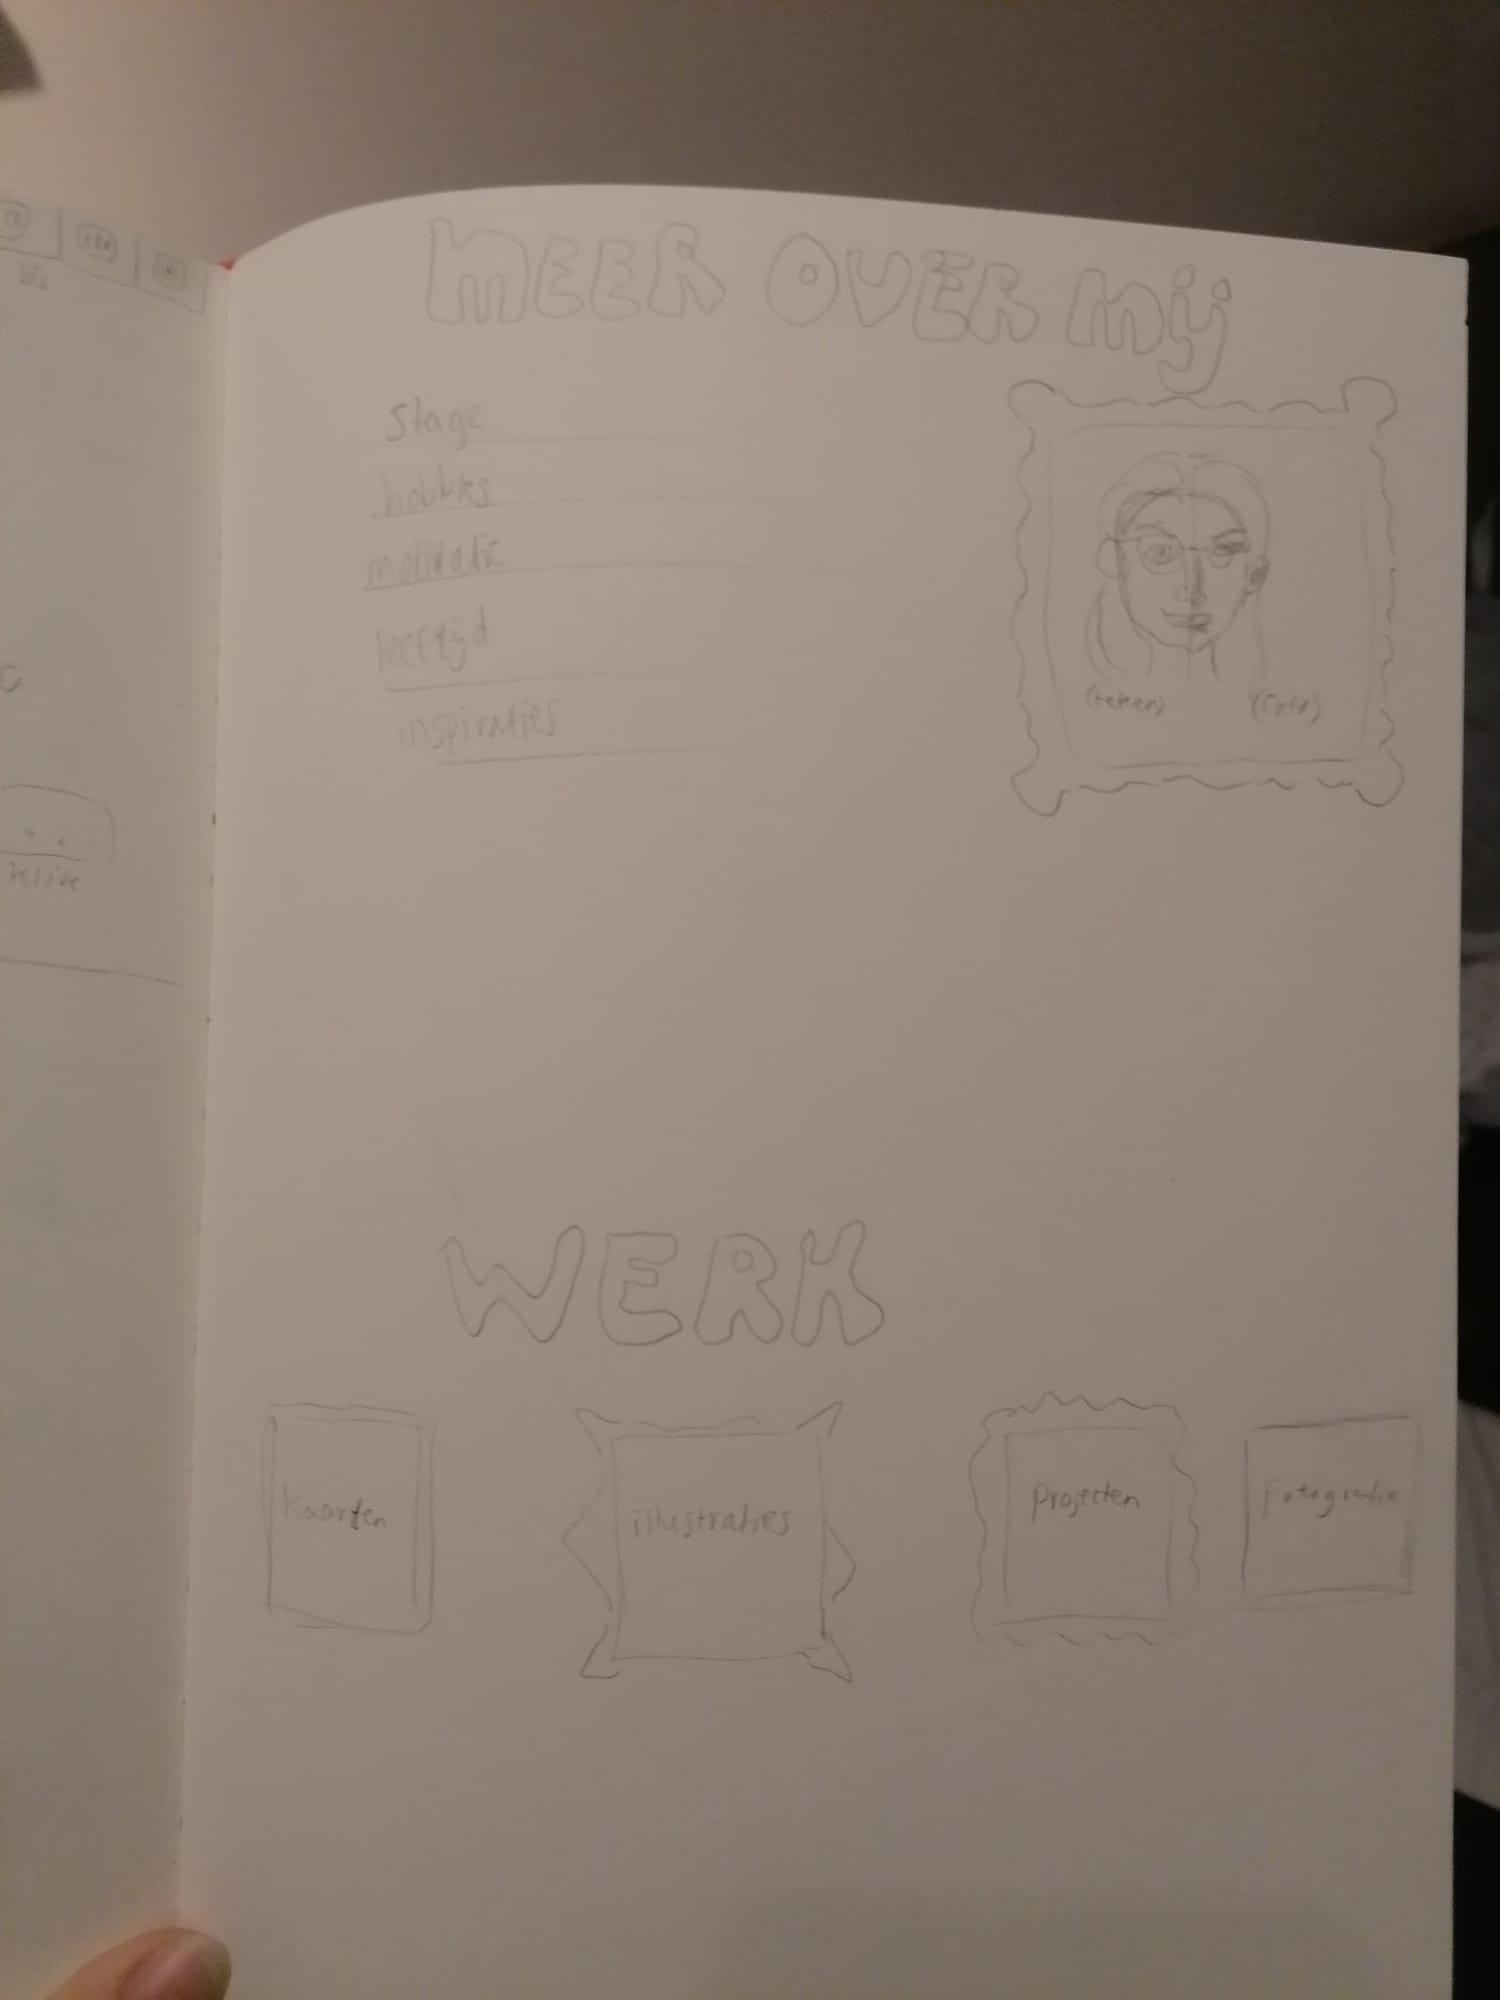 MEER OVER Mij
Stage
hobbies
motivatie
leeftijd
inspiraties
(teken) (foto)
klik
WERK
kaarten
illustraties
projecten
Fotografie